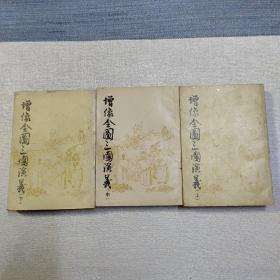 增像全圖三國演義 下
增像全圖三國演義 中
增像全圖三國演義 上